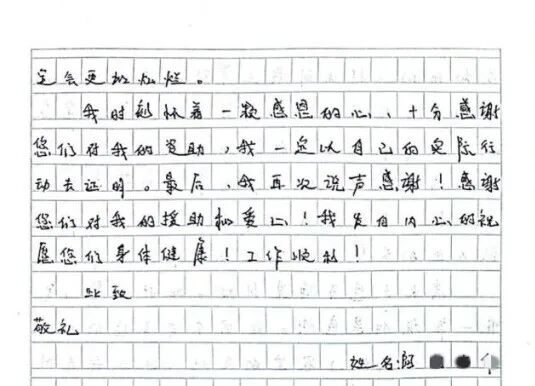 定会更加灿烂。
我时刻怀着一颗感恩的心、十分感谢
您们对我的资助，我一定以自己的实际行
动去证明。最后，我再次说声感谢！感谢
您们对我的援助和爱心！我发自内心的祝
愿您们身体健康！工作顺利！
此致
敬礼
姓名: